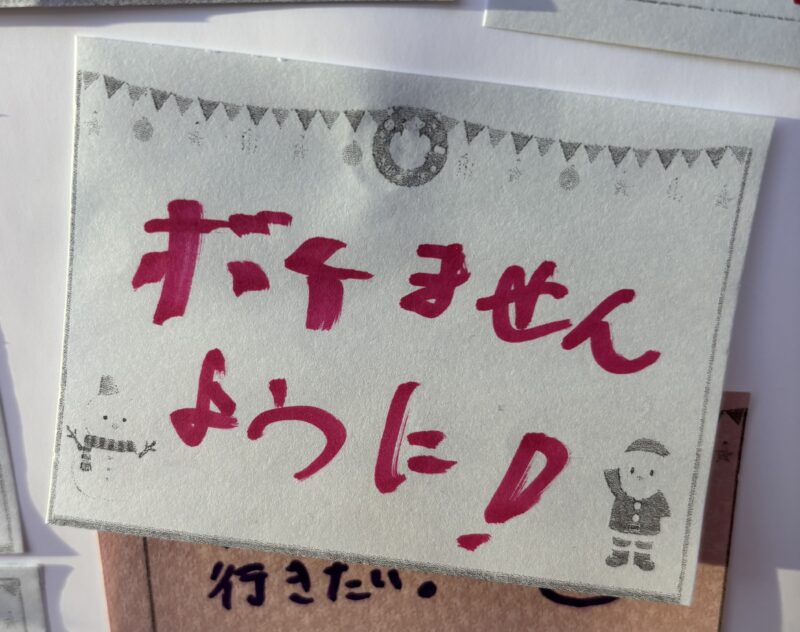 ボケません
ように!
行きたい。